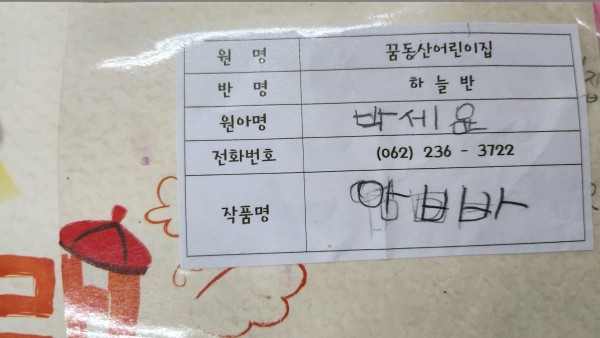 원 명 꿈동산어린이집
반 명 하늘반
원아명 박세윤
전화번호 (062) 236 - 3722
작품명